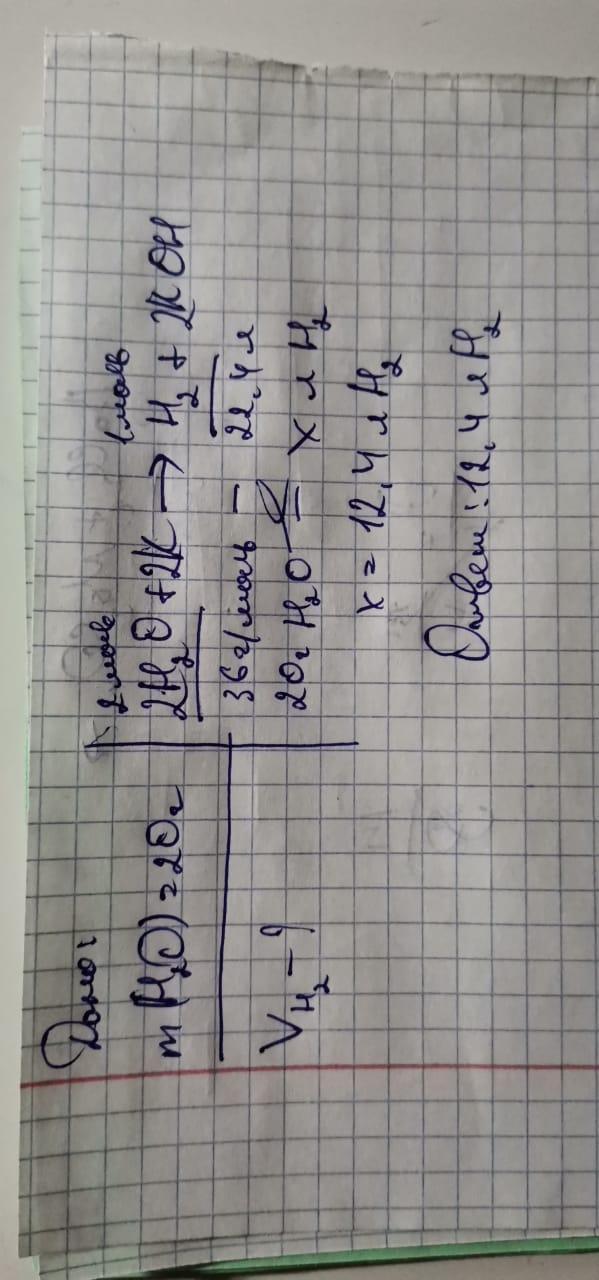 Дано:
m(H₂O) = 20г
V H₂ - ?
2 моль 1 моль
2H₂O + 2K → H₂ + 2KOH
36 г/моль - 22,4 л
20г H₂O - x л H₂
x = 12,4 л H₂
Ответ: 12,4 л H₂